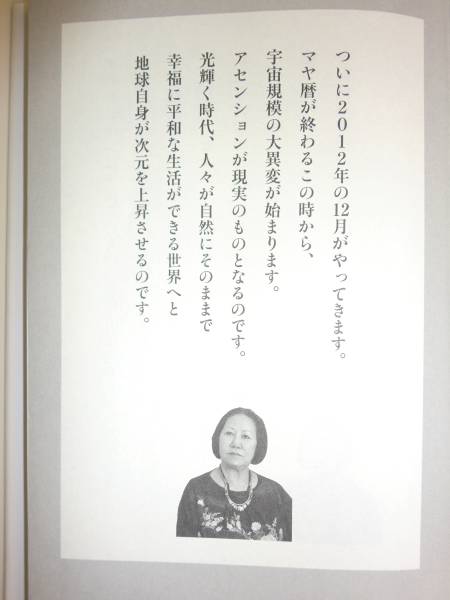 ついに2012年の12月がやってきます。
マヤ暦が終わるこの時から、
宇宙規模の大異変が始まります。
アセンションが現実のものとなるのです。
光輝く時代、人々が自然にそのままで
幸福に平和な生活ができる世界へと
地球自身が次元を上昇させるのです。